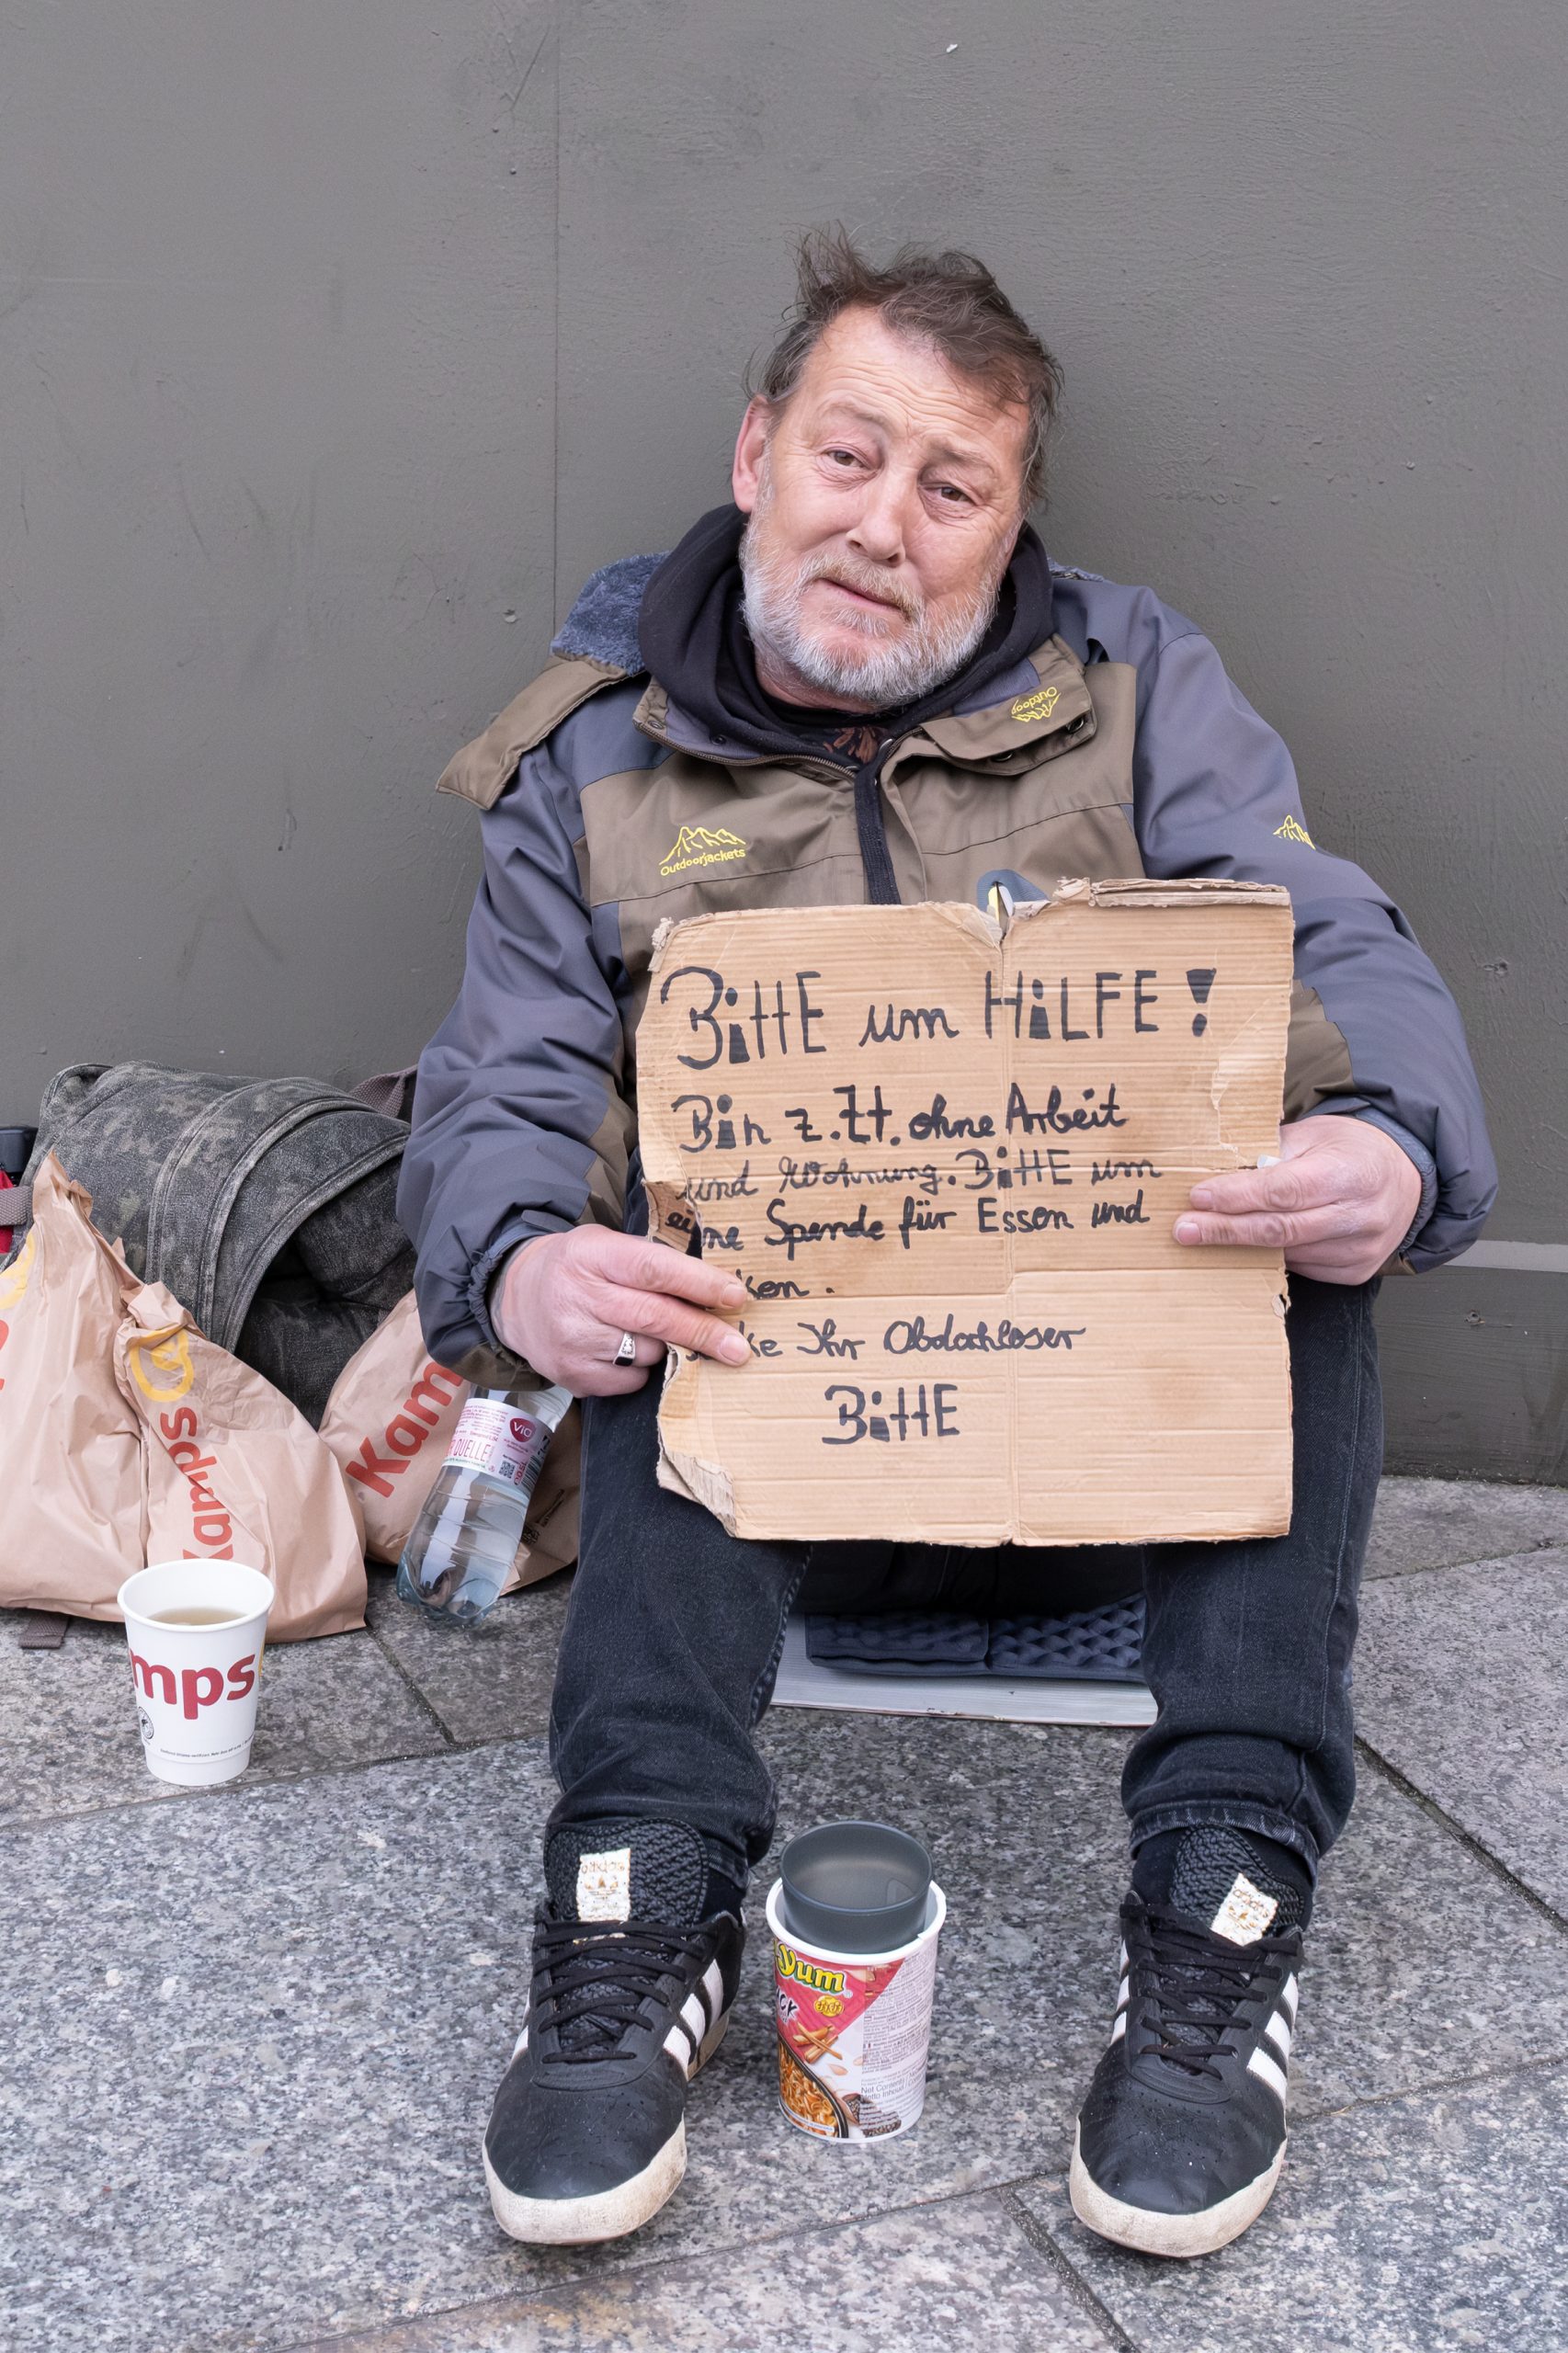 Outdoor
Outdoorjackets
BittE um HiLFE!
Bin z.Zt. ohne Arbeit
und Wohnung. BittE um
eine Spende für Essen und
ken.
ke Ihr Obdachloser
BittE
Kamps
Kam
ViO
QUELLE
mps
Yum
Net Contents